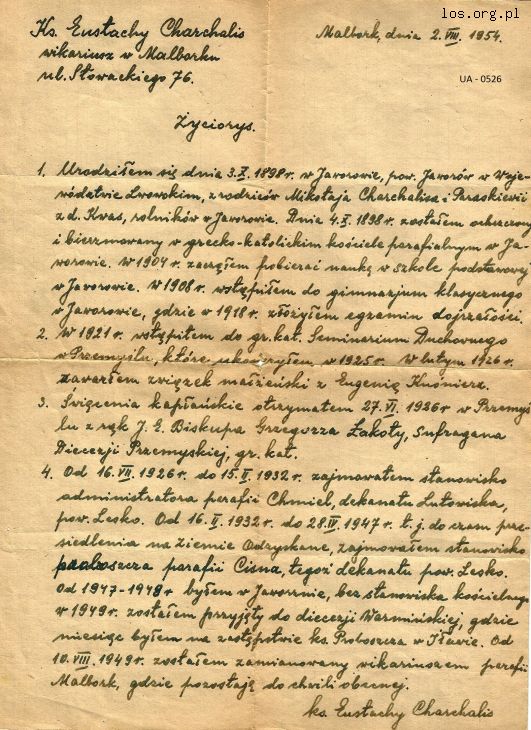 los.org.pl
Ks. Eustachy Charchalis
wikariusz w Malborku
ul. Słowackiego 76.
Malbork, dnia 2. VIII. 1954.
UA - 0526
Życiorys.
1. Urodziłem się dnia 3. X. 1898 r. w Jaworowie, pow. Jaworów w Woje-
wództwie Lwowskim, z rodziców Mikołaja Charchalisa i Paraskiewii
z d. Kwas, rolników w Jaworowie. Dnia 4. X. 1898 r. zostałem ochrzczony
i bierzmowany w grecko-katolickim kościele parafialnym w Ja-
worowie. W 1904 r. zacząłem pobierać naukę w szkole podstawowej
w Jaworowie. W 1908 r. wstąpiłem do gimnazjum klasycznego
w Jaworowie, gdzie w 1918 r. złożyłem egzamin dojrzałości.
2. W 1921 r. wstąpiłem do gr. kat. Seminarium Duchownego
w Przemyślu, które ukończyłem w 1925 r. W lutym 1926 r.
zawarłem związek małżeński z Eugenią Kuśnierz.
3. Święcenia kapłańskie otrzymałem 27. VI. 1926 r. w Przemyś-
lu z rąk J. E. Biskupa Grzegorza Łakoty, Sufragana
Diecezji Przemyskiej, gr. kat.
4. Od 16. VII. 1926 r. do 15. II. 1932 r. zajmowałem stanowisko
administratora parafii Chmiel, dekanatu Lutowiska,
pow. Lesko. Od 16. II. 1932 r. do 28. IV. 1947 r. t. j. do czasu prze-
siedlenia na Ziemie Odzyskane, zajmowałem stanowisko
proboszcza parafii Cisna, tegoż dekanatu pow. Lesko.
Od 1947-1949 byłem w Jaworznie, bez stanowiska kościelnego
w 1949 r. zostałem przyjęty do diecezji Warmińskiej, gdzie
miesiąc byłem na zastępstwie ks. Proboszcza w Iławie. Od
10. VIII. 1949 r. zostałem zamianowany wikariuszem parafii
Malbork, gdzie pozostaję do chwili obecnej.
ks. Eustachy Charchalis